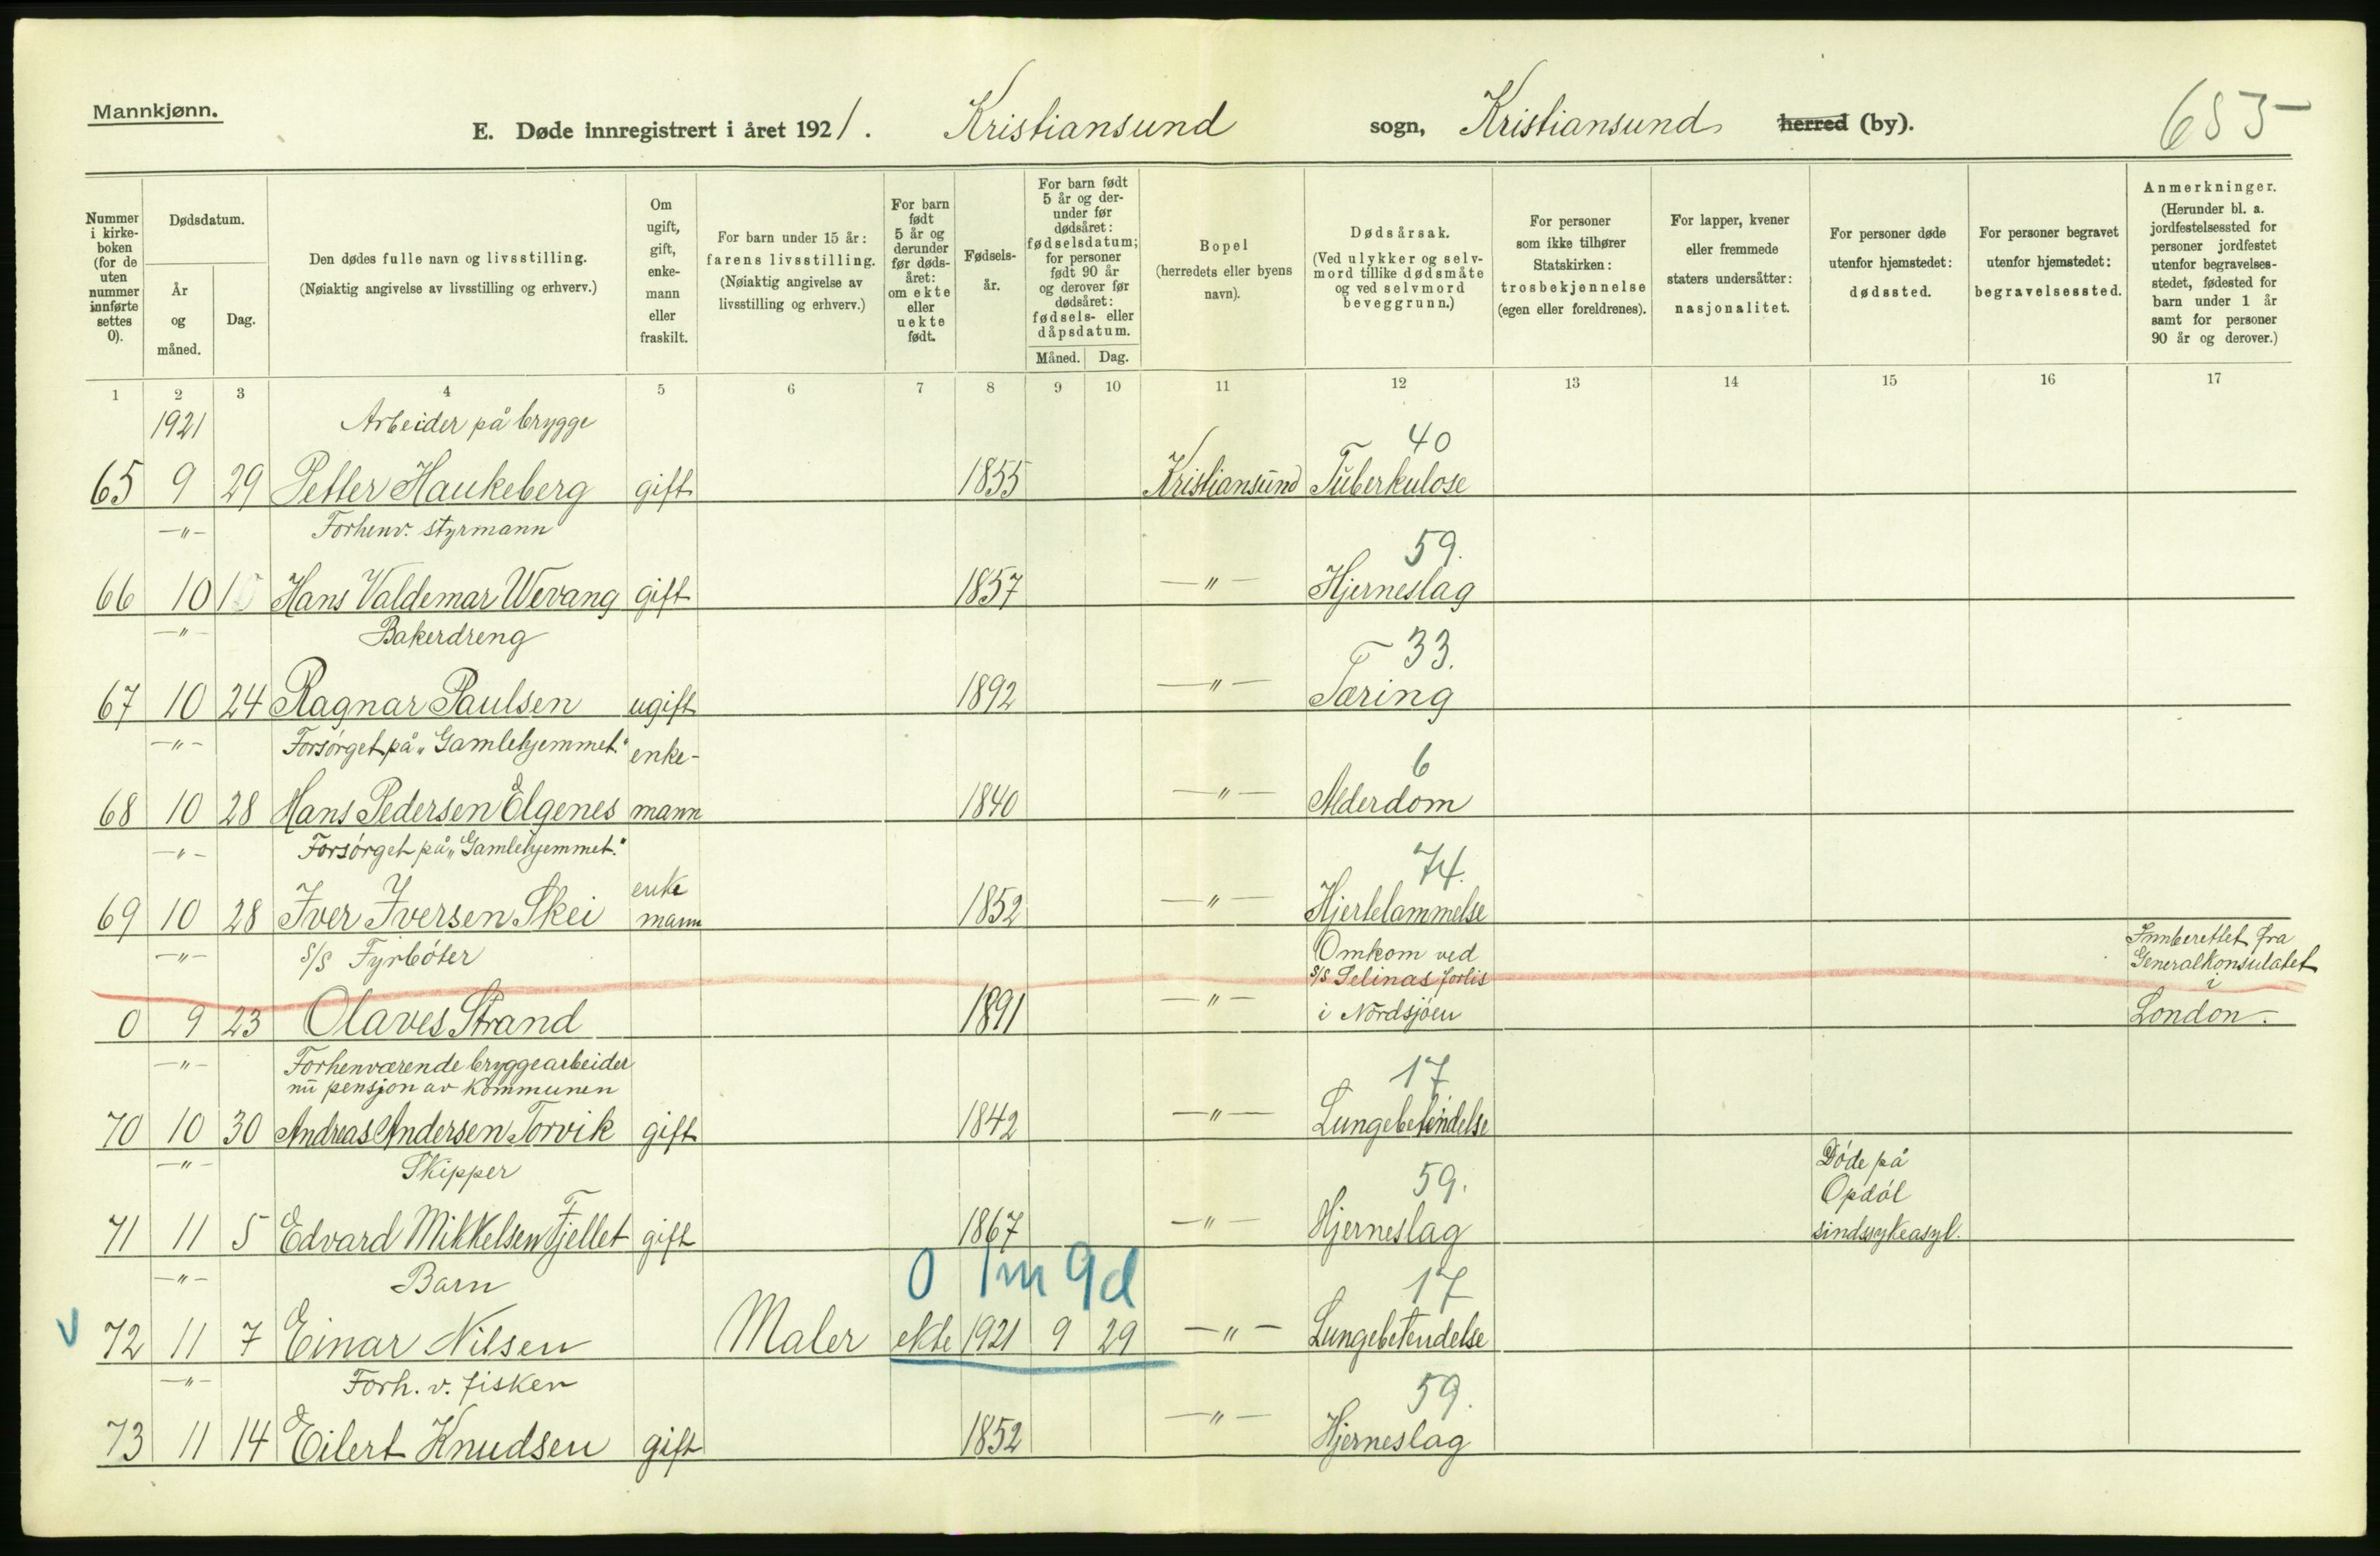 Mannkjønn.
E. Døde innregistrert i året 1921. Kristiansund sogn, Kristiansund herred (by).
Nummer i kirke- boken (for de uten nummer innførte settes 0).
Dødsdatum.
År og måned.
Dag.
Den dødes fulle navn og livsstilling.
(Nøiaktig angivelse av livsstilling og erhverv.)
Om ugift, gift, enke- mann eller fraskilt.
For barn under 15 år: farens livsstilling.
(Nøiaktig angivelse av livsstilling og erhverv.)
For barn født 5 år og derunder før døds- året: om ekte eller uekte født.
Fødsels- år.
For barn født 5 år og der- under før dødsåret: fødselsdatum; for personer født 90 år og derover før dødsåret: fødsels- eller dåpsdatum.
Måned. Dag.
Bopel
(herredets eller byens navn).
Dødsårsak.
(Ved ulykker og selv- mord tillike dødsmåte og ved selvmord beveggrunn.)
For personer som ikke tilhører Statskirken: trosbekjennelse (egen eller foreldrenes).
For lapper, kvener eller fremmede staters undersåtter: nasjonalitet.
For personer døde utenfor hjemstedet: dødssted.
For personer begravet utenfor hjemstedet: begravelsessted.
Anmerkninger.
(Herunder bl. a. jordfestelsessted for personer jordfestet utenfor begravelses- stedet, fødested for barn under 1 år samt for personer 90 år og derover.)
1 2 3 4 5 6 7 8 9 10 11 12 13 14 15 16 17
1921 Arbeider på brygge 40
65 9 29 Petter Haukeberg gift 1855 Kristiansund Tuberkulose
—"— Forhenv. styrmann 59.
66 10 Hans Valdemar Wevang gift 1857 —"— Hjerneslag
—"— Bakerdreng 33.
67 10 24 Ragnar Paulsen ugift 1892 —"— Tæring
—"— Forsørget på "Gamlehjemmet" enke- 6
68 10 28 Hans Pedersen Elgenes mann 1840 —"— Alderdom
—"— Forsørget på "Gamlehjemmet." 74.
69 10 28 Iver Iversen Skei enke mann 1852 —"— Hjertelammelse
—"— S/S Fyrbøter Omkom ved S/S Selinas forlis Innberettet fra Generalkonsulatet i
0 9 23 Olaves Strand 1891 —"— i Nordsjøen London.
—"— Forhenværende bryggearbeider
nu pensjon av kommunen 17
70 10 30 Andreas Andersen Torvik gift 1842 —"— Lungebetendelse
—"— Skipper 59. Døde på Opdøl
71 11 5 Edvard Mikkelsen Fjellet gift 1867 —"— Hjerneslag sindssykeasyl.
—"— Barn 0 1m 9d 17
V 72 11 7 Einar Nilsen Maler ekte 1921 9 29 —"— Lungebetendelse
—"— Forh. v. fisker 59.
73 11 14 Eilert Knudsen gift 1852 —"— Hjerneslag